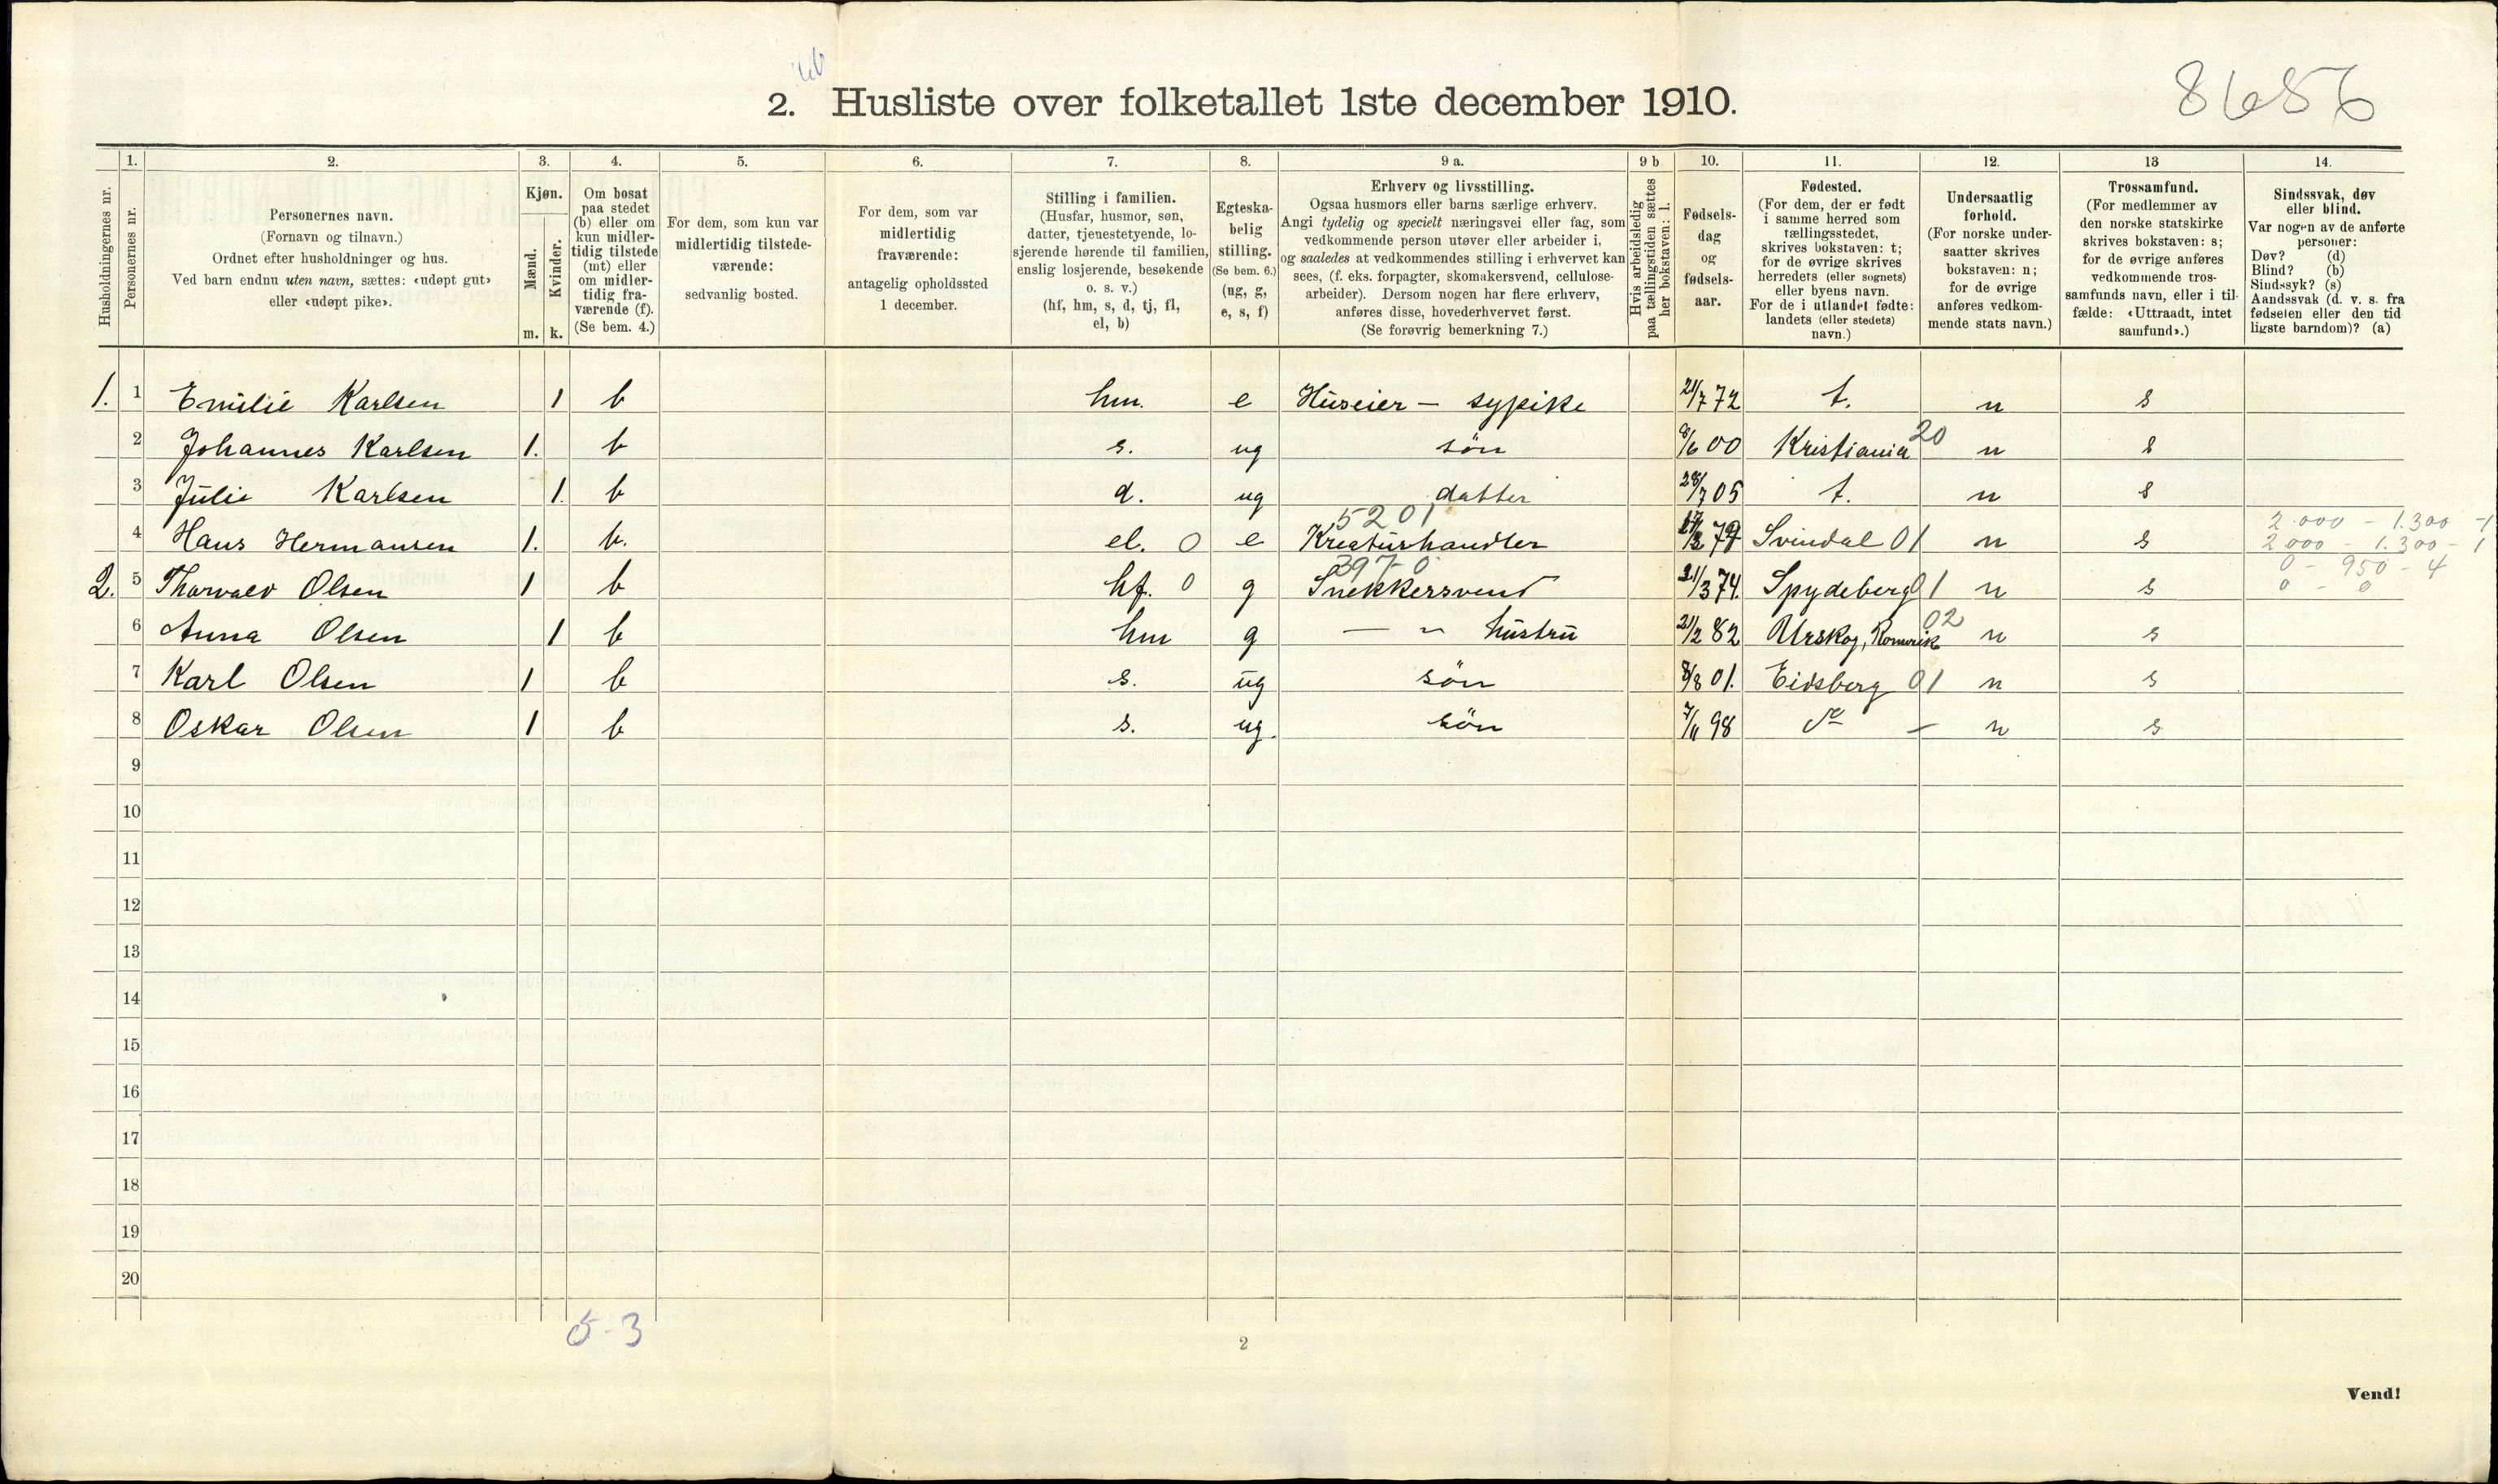 2. Husliste over folketallet 1ste december 1910.
8656
Husholdningernes nr.
1.
Personernes nr.
2.
Personernes navn.
(Fornavn og tilnavn.)
Ordnet efter husholdninger og hus.
Ved barn endnu uten navn, sættes: «udøpt gut»
eller «udøpt pike».
3.
Kjøn.
Mænd.
Kvinder.
m. k.
4.
Om bosat
paa stedet
(b) eller om
kun midler-
tidig tilstede
(mt) eller
om midler-
tidig fra-
værende (f).
(Se bem. 4.)
5.
For dem, som kun var
midlertidig tilstede-
værende:
sedvanlig bosted.
6.
For dem, som var
midlertidig
fraværende:
antagelig opholdssted
1 december.
7.
Stilling i familien.
(Husfar, husmor, søn,
datter, tjenestetyende, lo-
sjerende hørende til familien,
enslig losjerende, besøkende
o. s. v.)
(hf, hm, s, d, tj, fl,
el, b)
8.
Egteska-
belig
stilling.
(Se bem. 6.)
(ug, g,
e, s, f)
9 a.
Erhverv og livsstilling.
Ogsaa husmors eller barns særlige erhverv.
Angi tydelig og specielt næringsvei eller fag, som
vedkommende person utøver eller arbeider i,
og saaledes at vedkommendes stilling i erhvervet kan
sees, (f. eks. forpagter, skomakersvend, cellulose-
arbeider). Dersom nogen har flere erhverv,
anføres disse, hovederhvervet først.
(Se forøvrig bemerkning 7.)
9 b
Hvis arbeidsledig
paa tællingstiden sættes
her bokstaven: l.
10.
Fødsels-
dag
og
fødsels-
aar.
11.
Fødested.
(For dem, der er født
i samme herred som
tællingsstedet,
skrives bokstaven: t;
for de øvrige skrives
herredets (eller sognets)
eller byens navn.
For de i utlandet fødte:
landets (eller stedets)
navn.)
12.
Undersaatlig
forhold.
(For norske under-
saatter skrives
bokstaven: n;
for de øvrige
anføres vedkom-
mende stats navn.)
13
Trossamfund.
(For medlemmer av
den norske statskirke
skrives bokstaven: s;
for de øvrige anføres
vedkommende tros-
samfunds navn, eller i til-
fælde: «Uttraadt, intet
samfund».)
14.
Sindssvak, døv
eller blind.
Var nogen av de anførte
personer:
Døv? (d)
Blind? (b)
Sindssyk? (s)
Aandssvak (d. v. s. fra
fødselen eller den tid-
ligste barndom)? (a)
1. 1 Emilie Karlsen 1 b hm. e Huseier - sypike 21/7 72 t. n s
2 Johannes Karlsen 1. b s. ug søn 8/6 00 Kristiania 20 n s
3 Julie Karlsen 1. b d. ug datter 28/7 05 t. n s
5201
2.000 - 1.300 - 1
4 Hans Hermansen 1. b. el. 0 e Kreaturhandler Svindal 01 n s 2000 - 1.300 - 1
397-0
0 - 950 - 4
2. 5 Thorvald Olsen 1 b hf. 0 g Snekkersvend 21/3 74. Spydeberg 01 n s 0 - 0
02
6 Anna Olsen 1 b hm g — " hustru 21/2 82 Urskog, Romerik n s
7 Karl Olsen 1 b s. ug søn 8/8 01. Eidsberg 01 n s
8 Oskar Olsen 1 b s. ug. søn 7/11 98 do - n s
9
10
11
12
13
14
15
16
17
18
19
20
5-3
2
Vend!